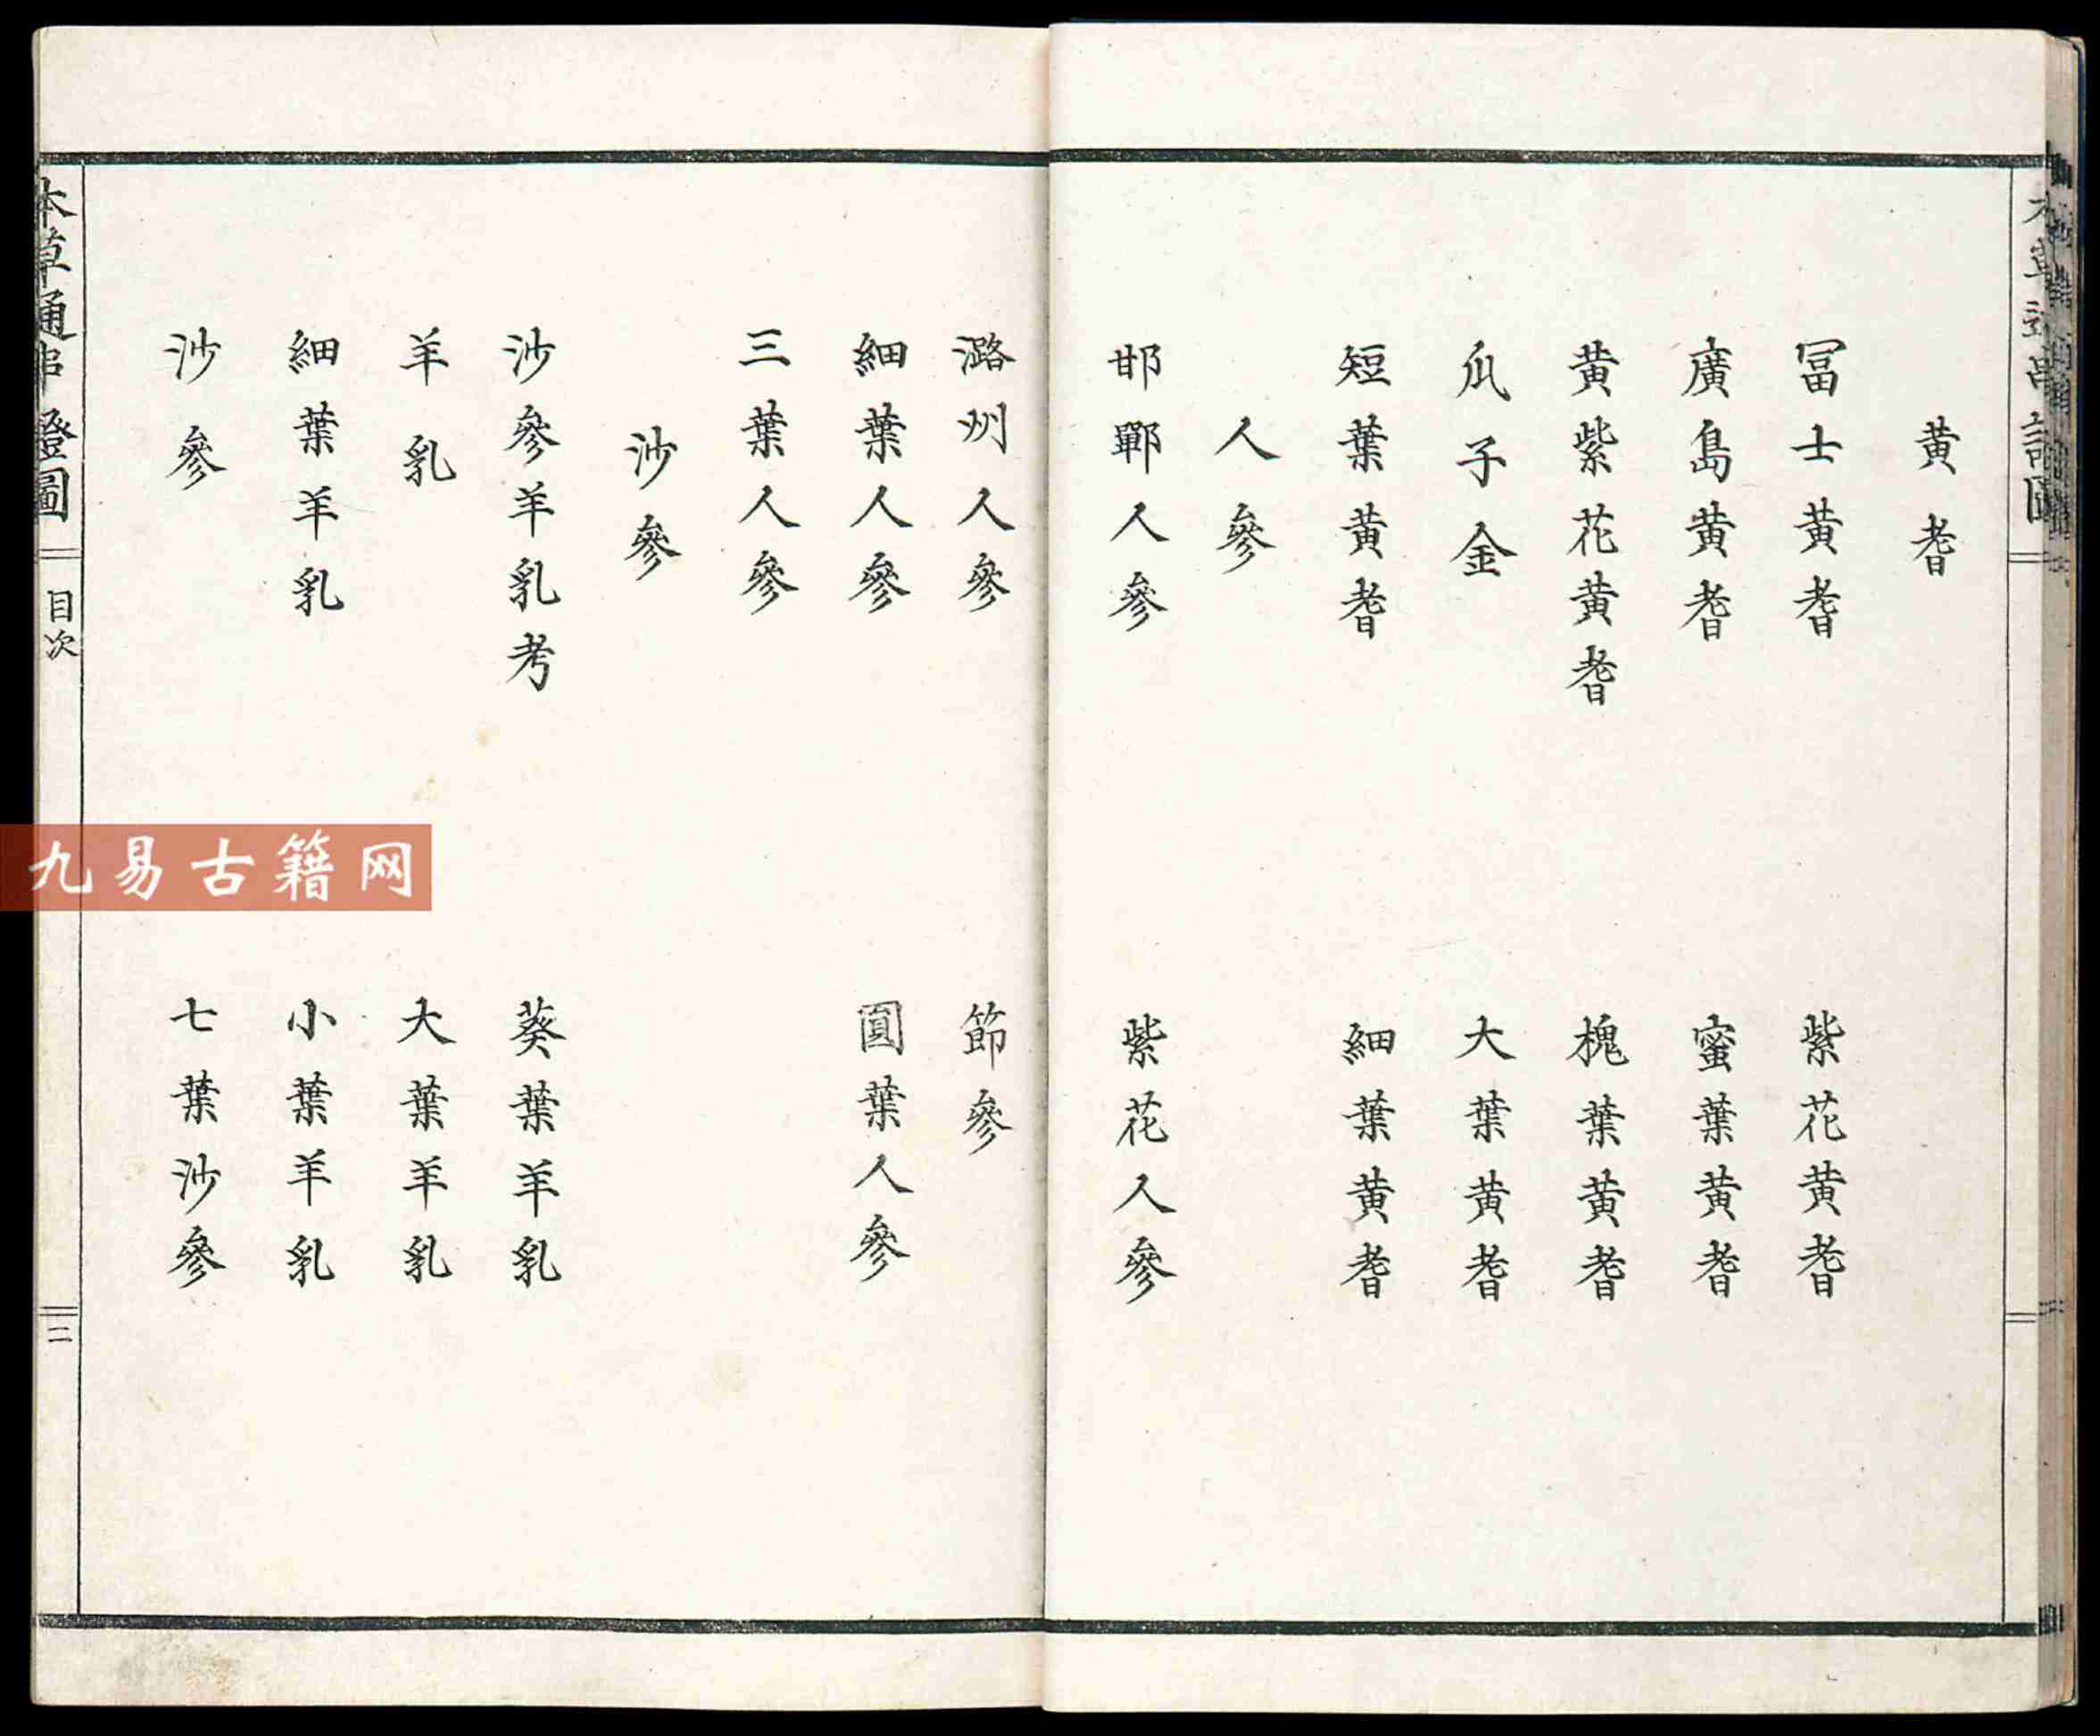 黄耆
冨士黄耆
紫花黄耆
廣島黄耆
蜜葉黄耆
黄紫花黄耆
槐葉黄耆
爪子金
大葉黄耆
短葉黄耆
細葉黄耆
人參
邯鄲人參
紫花人參
潞州人參
節參
細葉人參
圓葉人參
三葉人參
沙參
沙參羊乳考
葵葉羊乳
羊乳
大葉羊乳
細葉羊乳
小葉羊乳
沙參
七葉沙參
本草通串證圖
目次
二
九易古籍网